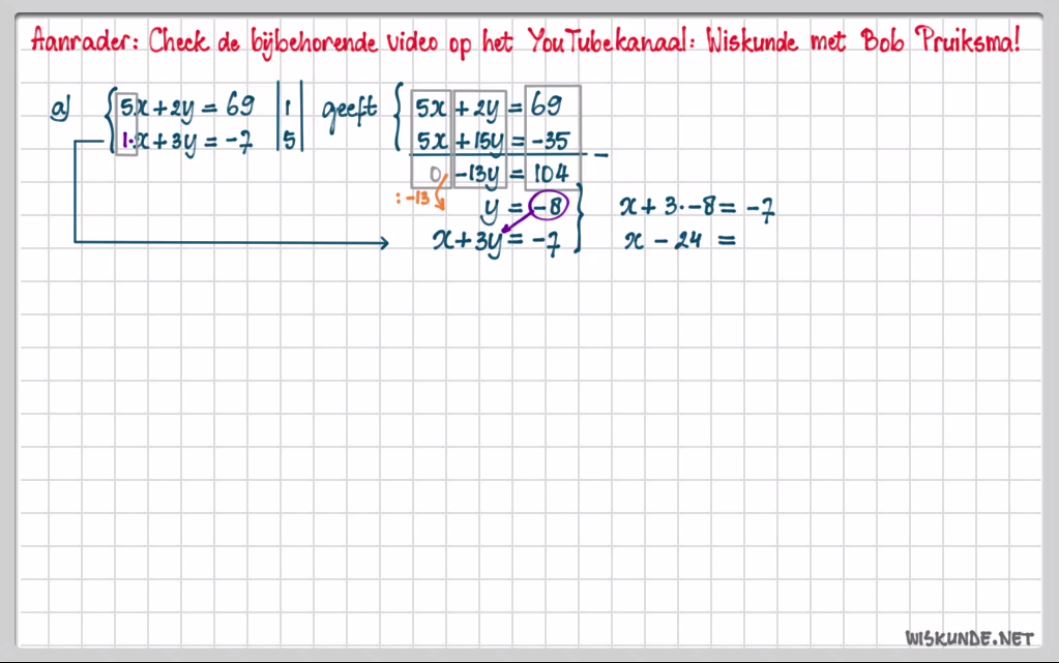 Aanrader: Check de bijbehorende video op het YouTubekanaal: Wiskunde met Bob Pruiksma!
a) { 5x + 2y = 69 | 1 | geeft { 5x + 2y = 69
1·x + 3y = -7 | 5 | 5x + 15y = -35
0 -13y = 104 -
: -13 y = -8 } x + 3·-8 = -7
x + 3y = -7 x - 24 =
WISKUNDE.NET